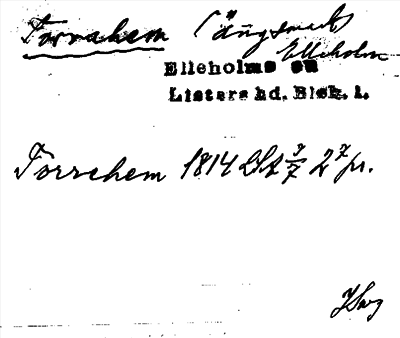 Torrahem Längs med
Elleholm
Elleholms sn
Listers hd. Blek. l.
Torrehem 1814 LSA 3/7 27 pr.